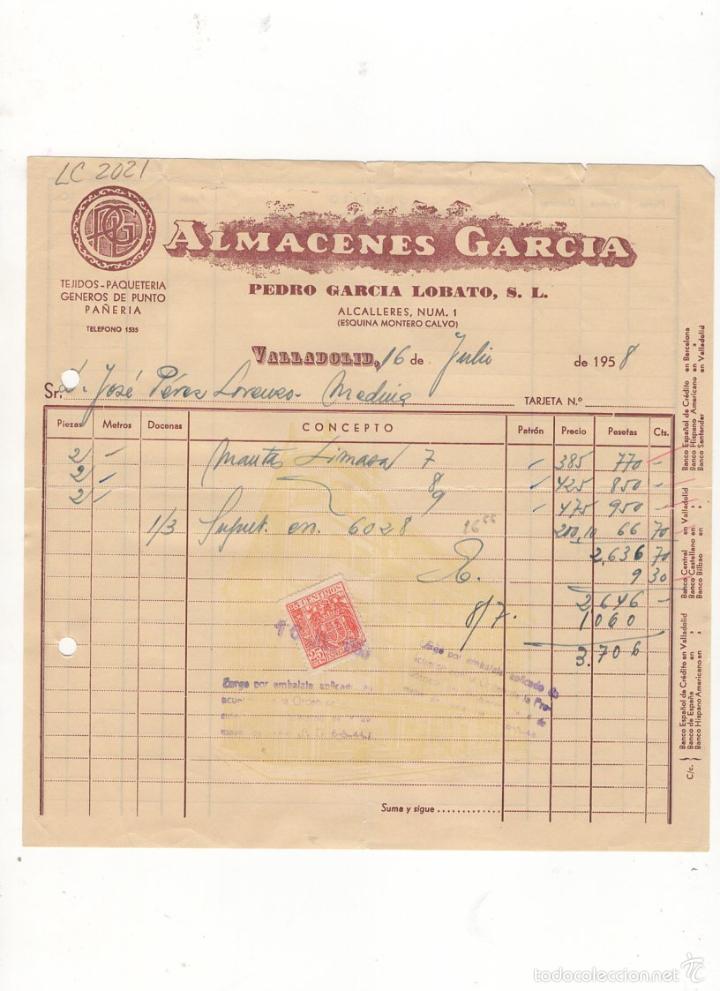 LC 2021
PGL
ALMACENES GARCIA
TEJIDOS-PAQUETERIA
GENEROS DE PUNTO
PAÑERIA
TELEFONO 1535
PEDRO GARCIA LOBATO, S. L.
ALCALLERES, NUM. 1
(ESQUINA MONTERO CALVO)
VALLADOLID, 16 de Julio de 1958
Sr. D. José Pérez Lorenzo - Medina TARJETA N.º
Piezas Metros Docenas CONCEPTO Patrón Precio Pesetas Cts.
2/ - Manta 7 385 770 -
2/ - 8 425 850 -
2/ - 9 475 950 -
1/3 en. 6028 66 70
2,636 70
9 30
2,646 -
8/7. 1060
3.706
25 CENTIMOS
25
Cargo por embalaje aplicado de
Cargo por embalaje aplicado de
Suma y sigue
C/c.
Banco Español de Crédito en Valladolid
Banco de España en »
Banco Hispano Americano en »
Banco Central en Valladolid
Banco Castellano en »
Banco Bilbao en »
Banco Español de Crédito en Barcelona
Banco Hispano Americano en »
Banco Santander en Valladolid
todocoleccion.net